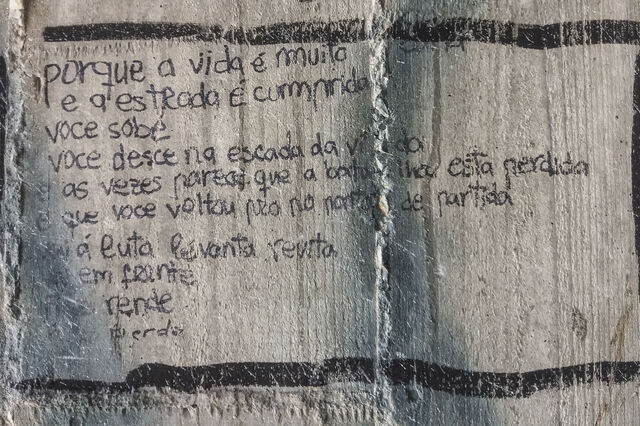 porque a vida é muito
e a estrada é cumprida
voce sobe
voce desce na escada da vida
as vezes parece que a batalha esta perdida
e que voce voltou pro no ponto de partida
á luta levanta revita
em frante
rende
perdo